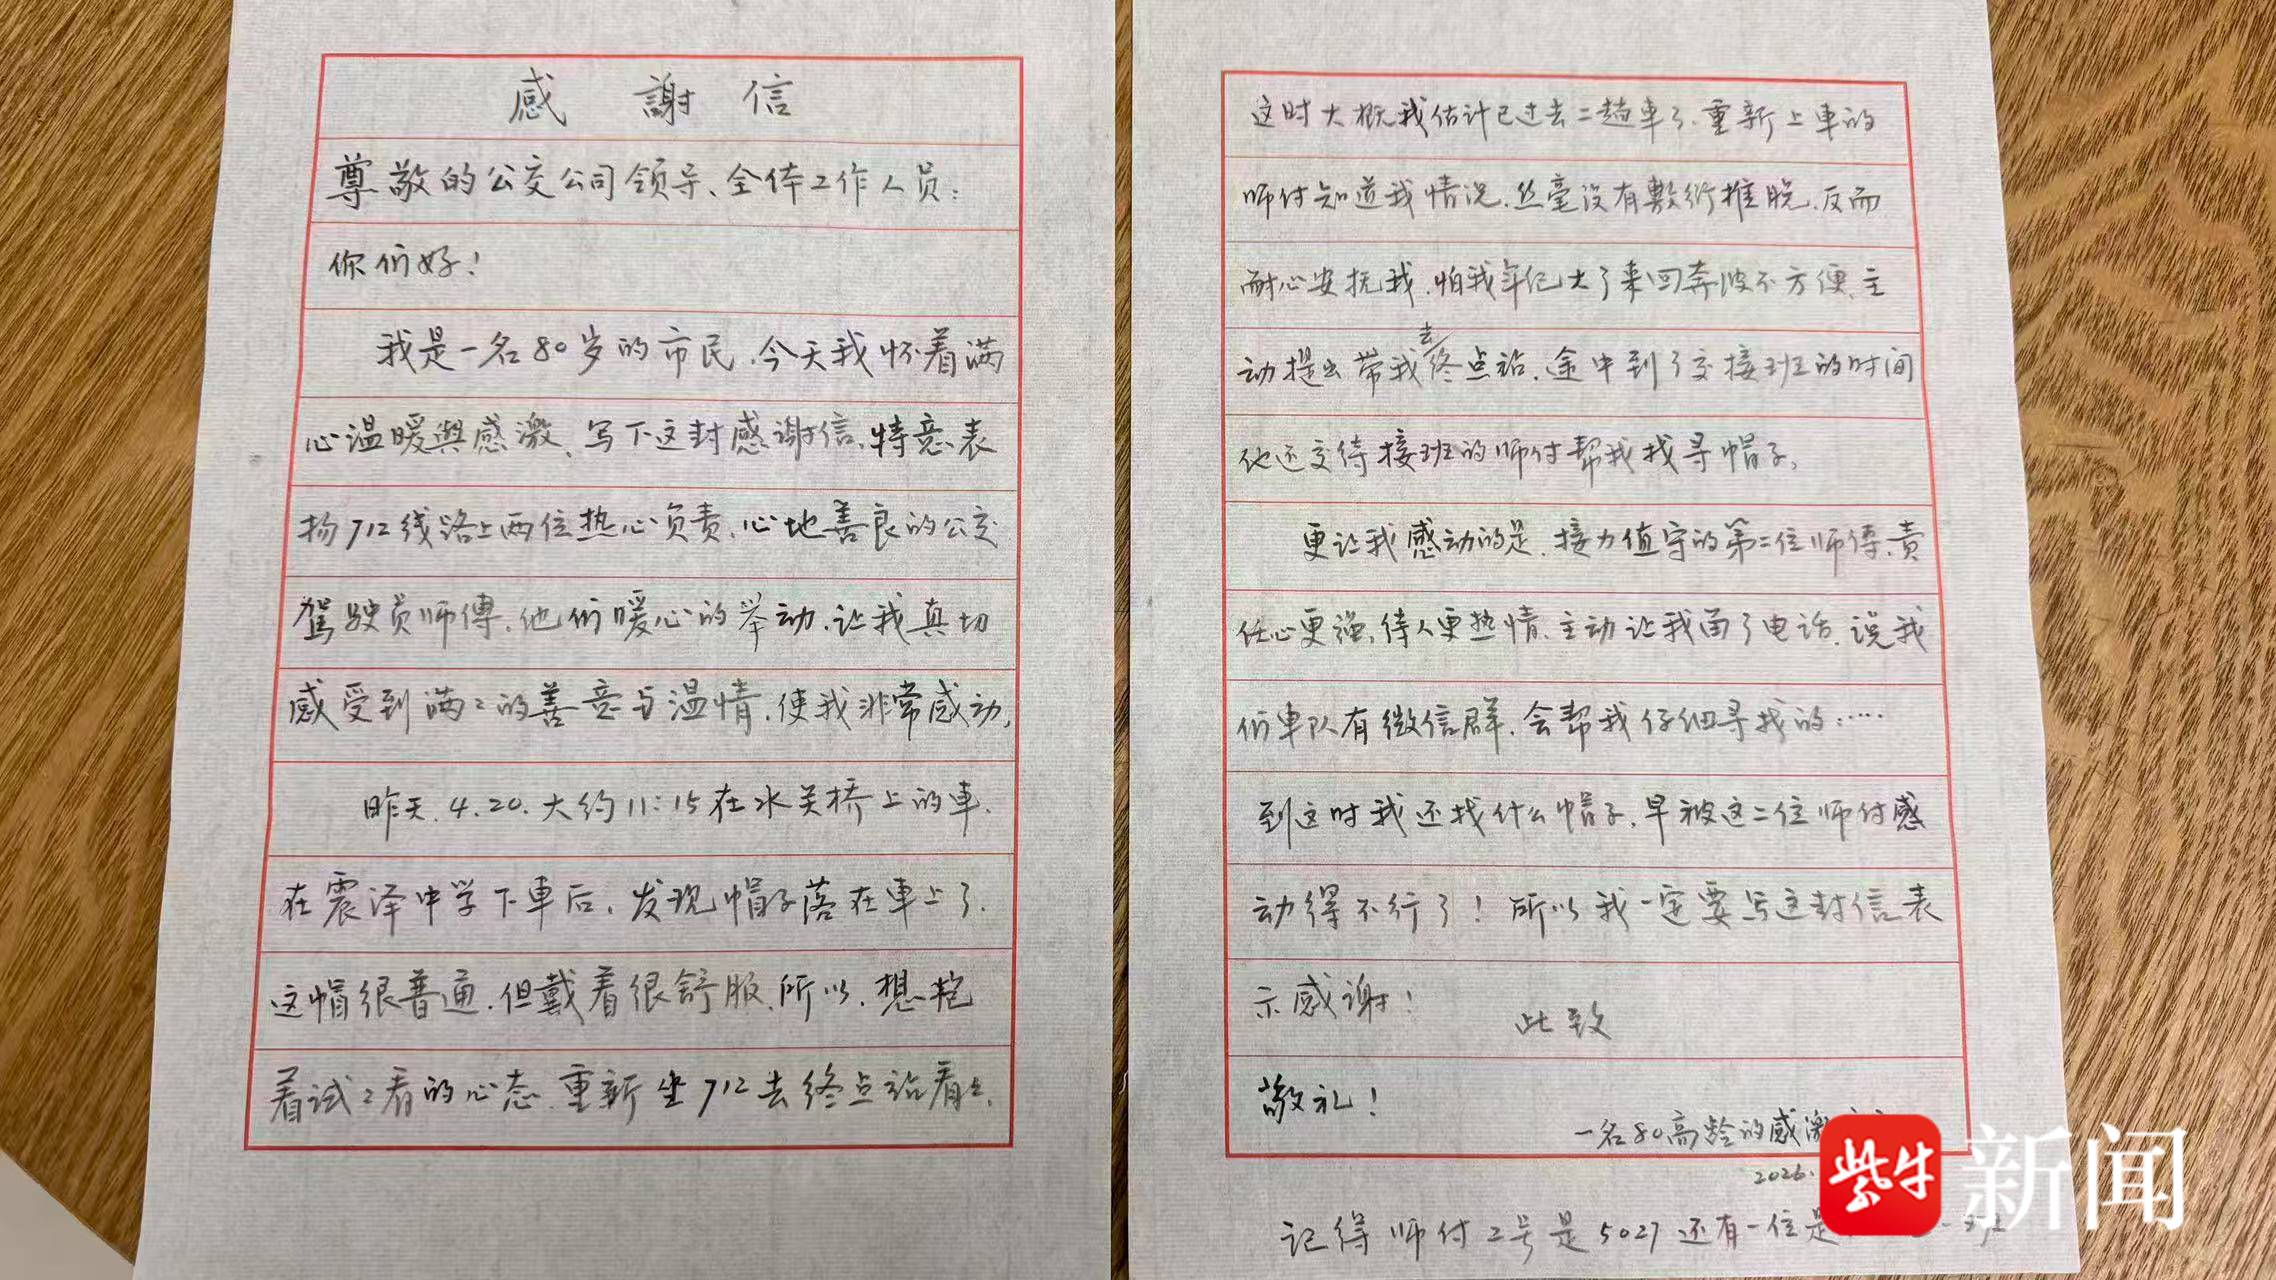 感謝信
尊敬的公交公司领导、全体工作人员:
你们好!
我是一名80岁的市民,今天我怀着满
心温暖與感激、写下这封感谢信,特意表
扬712线路上两位热心负责、心地善良的公交
驾駛员师傅,他们暖心的举动,让我真切
感受到满々的善意与温情,使我非常感动,
昨天,4.20.大约11:15在水关桥上的車,
在震泽中学下車后,发现帽子落在車上了.
这帽很普通,但戴着很舒服,所以,想抱
着试々看的心态,重新坐712去终点站看々,
这时大概我估计已过去二趟車了,重新上車的
师付知道我情况,丝毫没有敷衍推脱,反而
耐心安抚我,怕我年纪大了来回奔波不方便,主
动提出带我去终点站,途中到了交接班的时间
他还交待接班的师付帮我找寻帽子,
更让我感动的是,接力值守的第二位师傅,责
任心更强,待人更热情,主动让我留了电话,说我
们車队有微信群,会帮我仔细寻找的……
到这时我还找什么帽子,早被这二位师付感
动得不行了!所以我一定要写这封信表
示感谢!
此致
敬礼!
一名80高龄的感激
2026.
记得师付工号是5027还有一位是
紫牛新闻